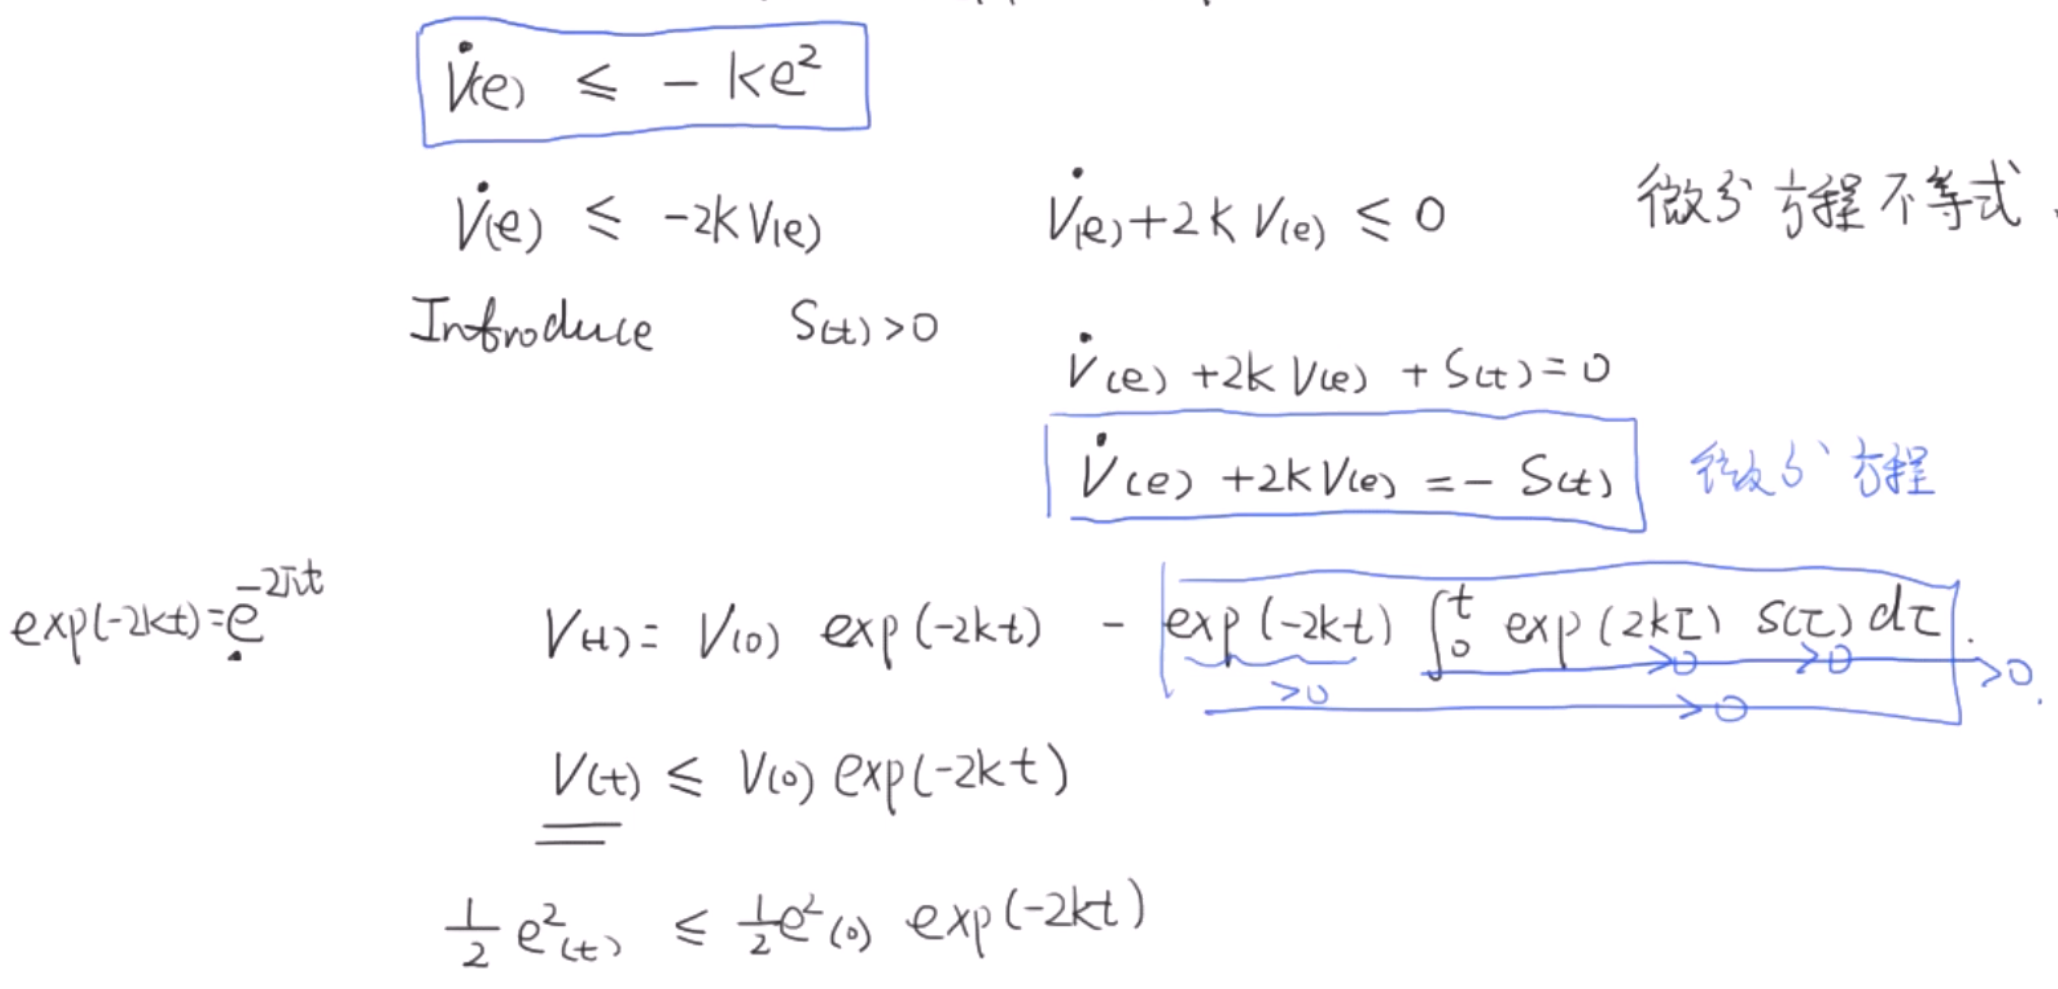 V̇(e) ≤ - ke²
V̇(e) ≤ -2kV(e) V̇(e)+2kV(e) ≤ 0 微分方程不等式.
Introduce S(t)>0
V̇(e) +2kV(e) + S(t)=0
V̇(e) +2kV(e) =- S(t) 微分方程
exp(-2kt)=e^-2πt V(t)= V(0) exp(-2kt) - exp(-2kt) ∫₀ᵗ exp(2kτ) S(τ)dτ.
>0 >0 >0 >0
>0.
V(t) ≤ V(0) exp(-2kt)
1/2 e²(t) ≤ 1/2 e²(0) exp(-2kt)